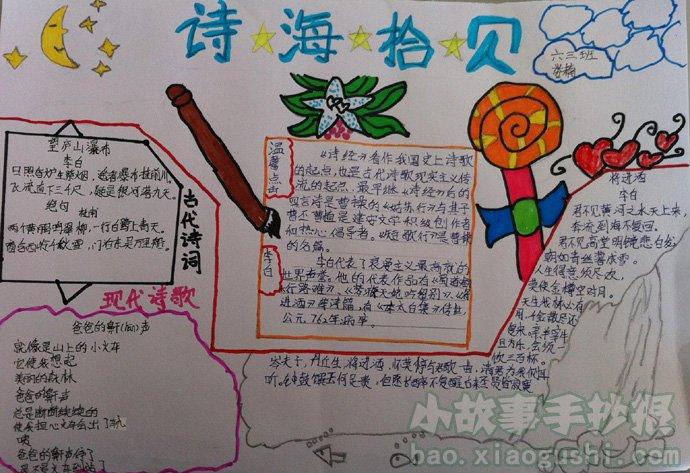 诗海拾贝
六三班
望庐山瀑布
李白
日照香炉生紫烟，遥看瀑布挂前川。
飞流直下三千尺，疑是银河落九天。
绝句
杜甫
两个黄鹂鸣翠柳，一行白鹭上青天。
窗含西岭千秋雪，门泊东吴万里船。
古代诗词
现代诗歌
爸爸的鼾(hān)声
就像是山上的小火车
它使我想起
美丽的森林
爸爸的鼾声
总是断断续续的
使我担心火车会出了轨
咦
爸爸的鼾声停了
是不是火车到站了
温馨点击
《诗经》看作我国史上诗歌
的起点，也是古代诗歌现实主义传
流的起点，最早继《诗经》后的
四言诗是曹操的《
曹丕曹植是建安文学积极创作者
和热心倡导者。《短歌行》是曹操
的名篇。
李白
李白代表了浪漫主义最高的
世界声誉。他的代表作品有《蜀道难》
《行路难》、《梦游天姥吟留别》、《将
进酒》等诗篇，有《李太白集》传世，
公元762年病卒
将进酒
李白
君不见黄河之水天上来，
奔流到海不复回。
君不见高堂明镜悲白发，
朝如青丝暮成雪。
人生得意须尽欢，
莫使金樽空对月。
天生我材必有
用，千金散尽还
复来。烹羊宰牛
且为乐，会须一
饮三百杯。
岑夫子，丹丘生，将进酒，杯莫停。与君歌一曲，请君为我倾耳
听。钟鼓馔玉何足贵，但愿长醉不复醒。古来圣贤皆寂寞
小故事手抄报
bao.xiaogushi.com